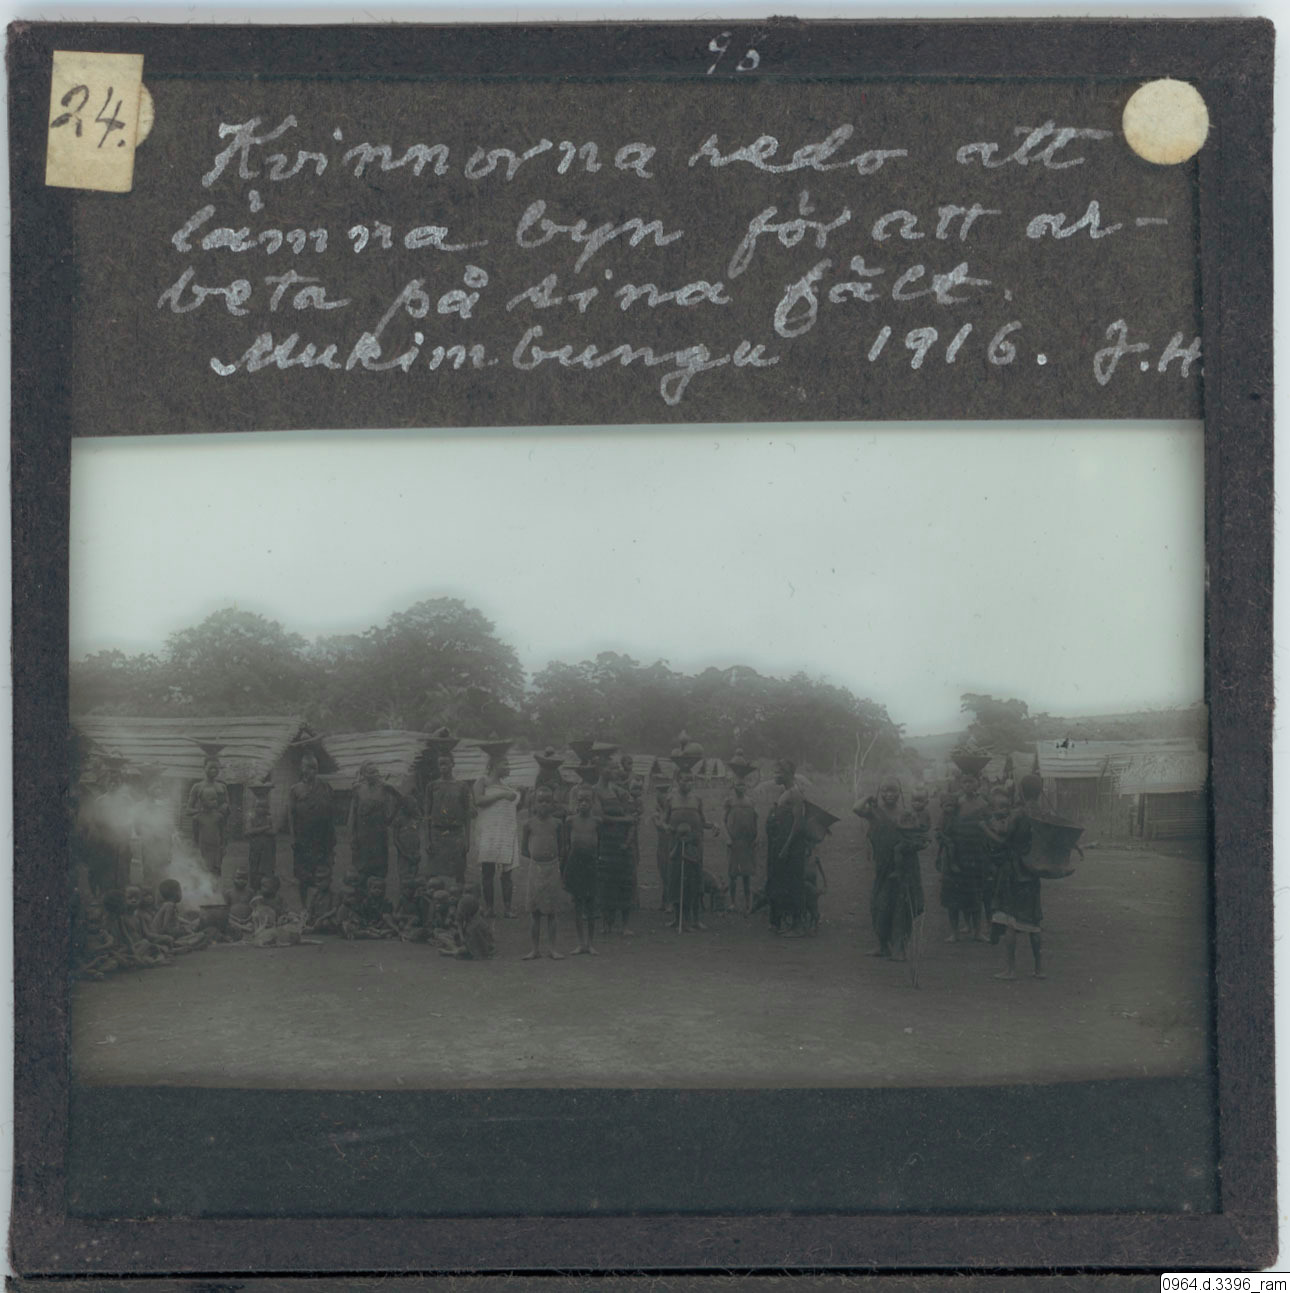 96
24.
Kvinnorna redo att
lämna byn för att ar-
beta på sina fält.
Mukimbungu 1916. J.H.
0964.d.3396_ram